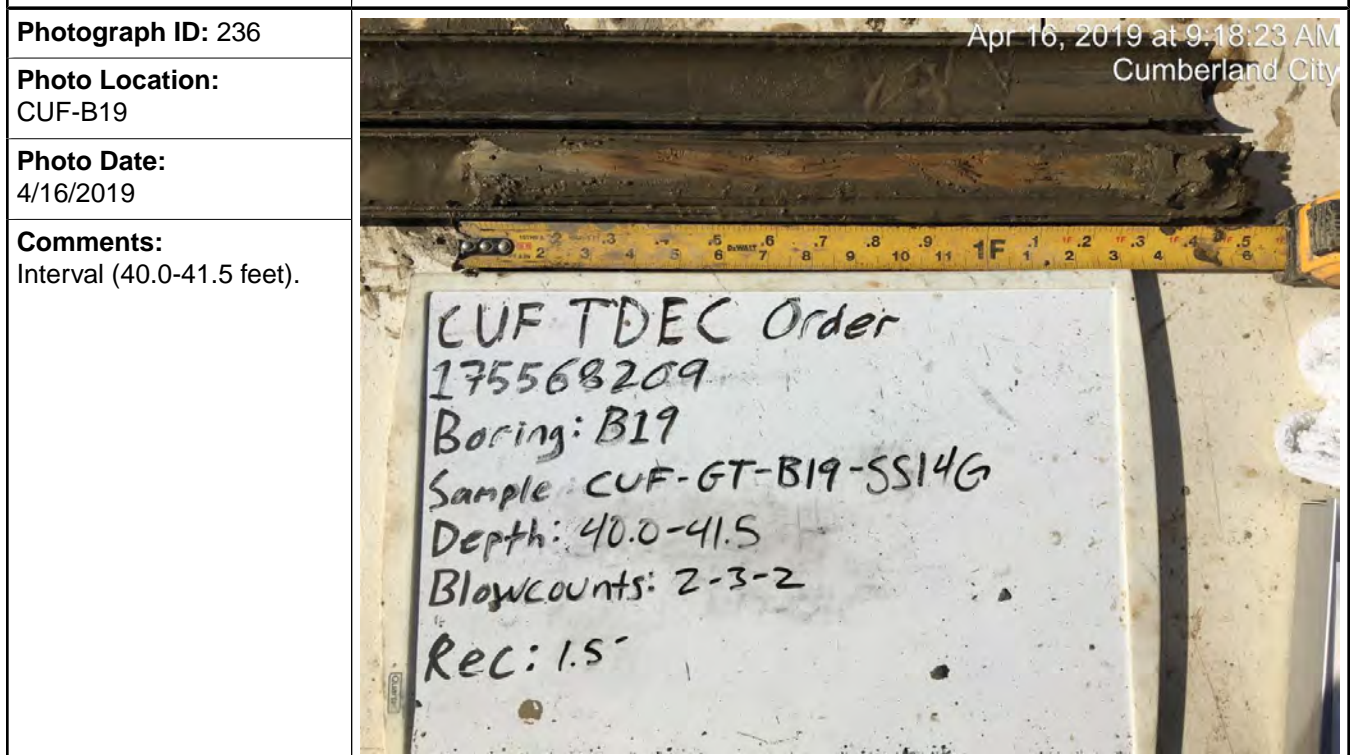 Photograph ID: 236
Photo Location:
CUF-B19
Photo Date:
4/16/2019
Comments:
Interval (40.0-41.5 feet).
Apr 16, 2019 at 9:18:23 AM
Cumberland City
.2 .3 .4 .5 DEWALT .6 .7 .8 .9 1F .1 1F .2 1F .3 1F .4 .5
2 3 4 5 6 7 8 9 10 11 1 2 3 4 6
CUF TDEC Order
175568209
Boring: B19
Sample: CUF-GT-B19-SS14G
Depth: 40.0-41.5
Blowcounts: 2-3-2
Rec: 1.5'
Quartet